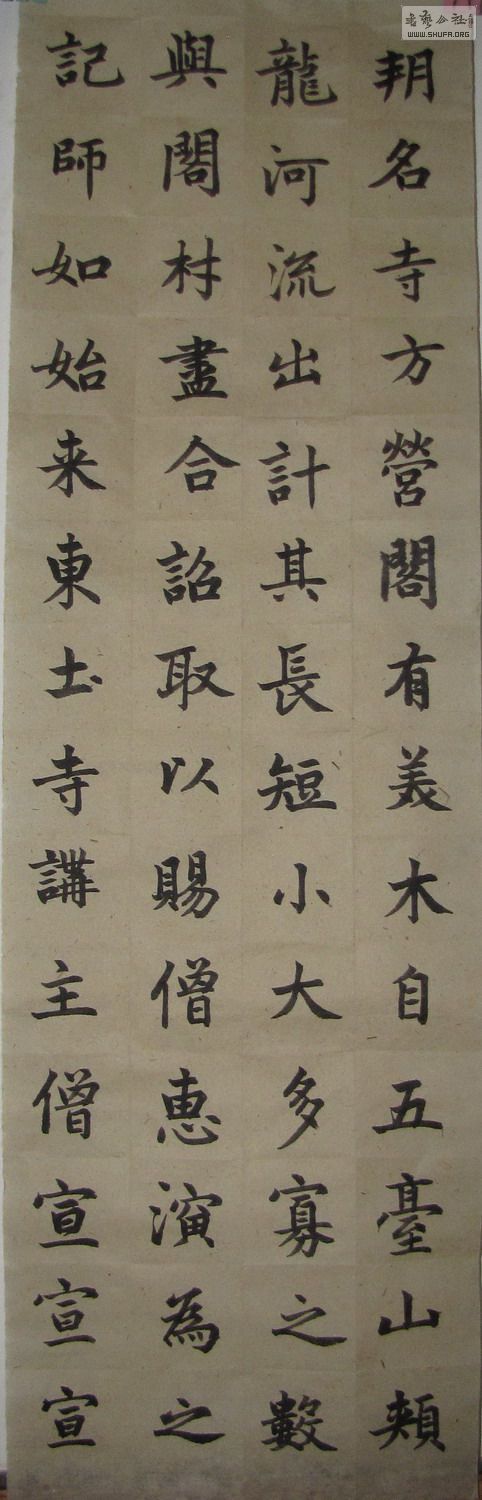 玥名寺方營閣有美木自五臺山頰
龍河流出計其長短小大多寡之數
與閣材盡合詔取以賜僧惠演為之
記師如始来東土寺講主僧宣宣宣
WWW.SHUFA.ORG